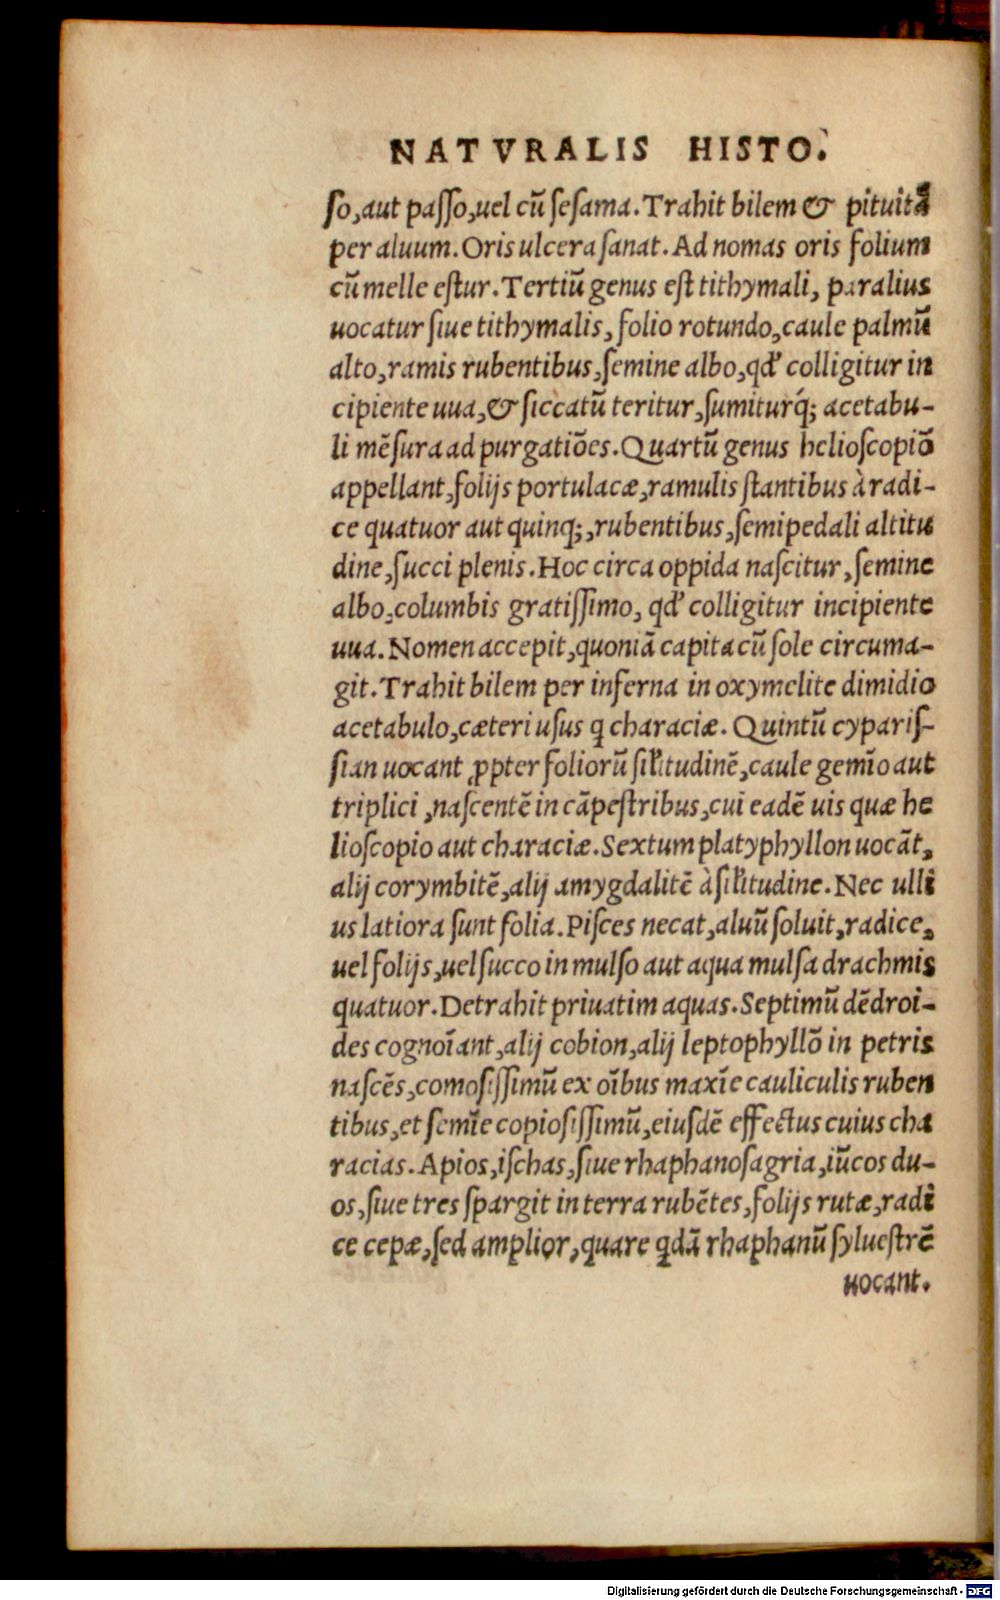 NATVRALIS HISTO.
ſo,aut paſſo,uel cū ſeſama.Trahit bilem & pituitā
per aluum.Oris ulcera ſanat.Ad nomas oris folium
cū melle eſtur.Tertiū genus eſt tithymali, paralius
uocatur ſiue tithymalis, folio rotundo,caule palmū
alto,ramis rubentibus,ſemine albo,qđ colligitur in
cipiente uua,& ſiccatū teritur,ſumiturq́; acetabu-
li mēſura ad purgatiōes.Quartū genus helioſcopiō
appellant,folijs portulacæ,ramulis ſtantibus à radi-
ce quatuor aut quinq;,rubentibus,ſemipedali altitu
dine,ſucci plenis.Hoc circa oppida naſcitur,ſemine
albo,columbis gratiſſimo, qđ colligitur incipiente
uua.Nomen accepit,quoniā capita cū ſole circuma-
git.Trahit bilem per inferna in oxymelite dimidio
acetabulo,cæteri uſus q̃ characiæ. Quintū cypariſ-
ſian uocant ꝓpter foliorū ſiƚitudinē,caule gemīo aut
triplici ,naſcentē in cāpeſtribus,cui eadē uis quæ he
lioſcopio aut characiæ.Sextum platyphyllon uocāt,
alij corymbitē,alij amygdalitē à ſiƚitudine.Nec ulli
us latiora ſunt folia.Piſces necat,aluū ſoluit,radice,
uel folijs,uel ſucco in mulſo aut aqua mulſa drachmis
quatuor.Detrahit priuatim aquas.Septimū dēdroi-
des cognoīant,alij cobion,alij leptophyllō in petris
naſcēs,comoſiſſimū ex oībus maxīe cauliculis ruben
tibus,et ſemīe copioſiſſimū,eiuſdē effectus cuius cha
racias.Apios,iſchas,ſiue rhaphanoſagria,iūcos du-
os,ſiue tres ſpargit in terra rubētes,folijs rutæ,radi
ce cepæ,ſed amplior,quare qdā rhaphanū ſylueſtrē
uocant.
Digitalisierung gefördert durch die Deutsche Forschungsgemeinschaft - DFG